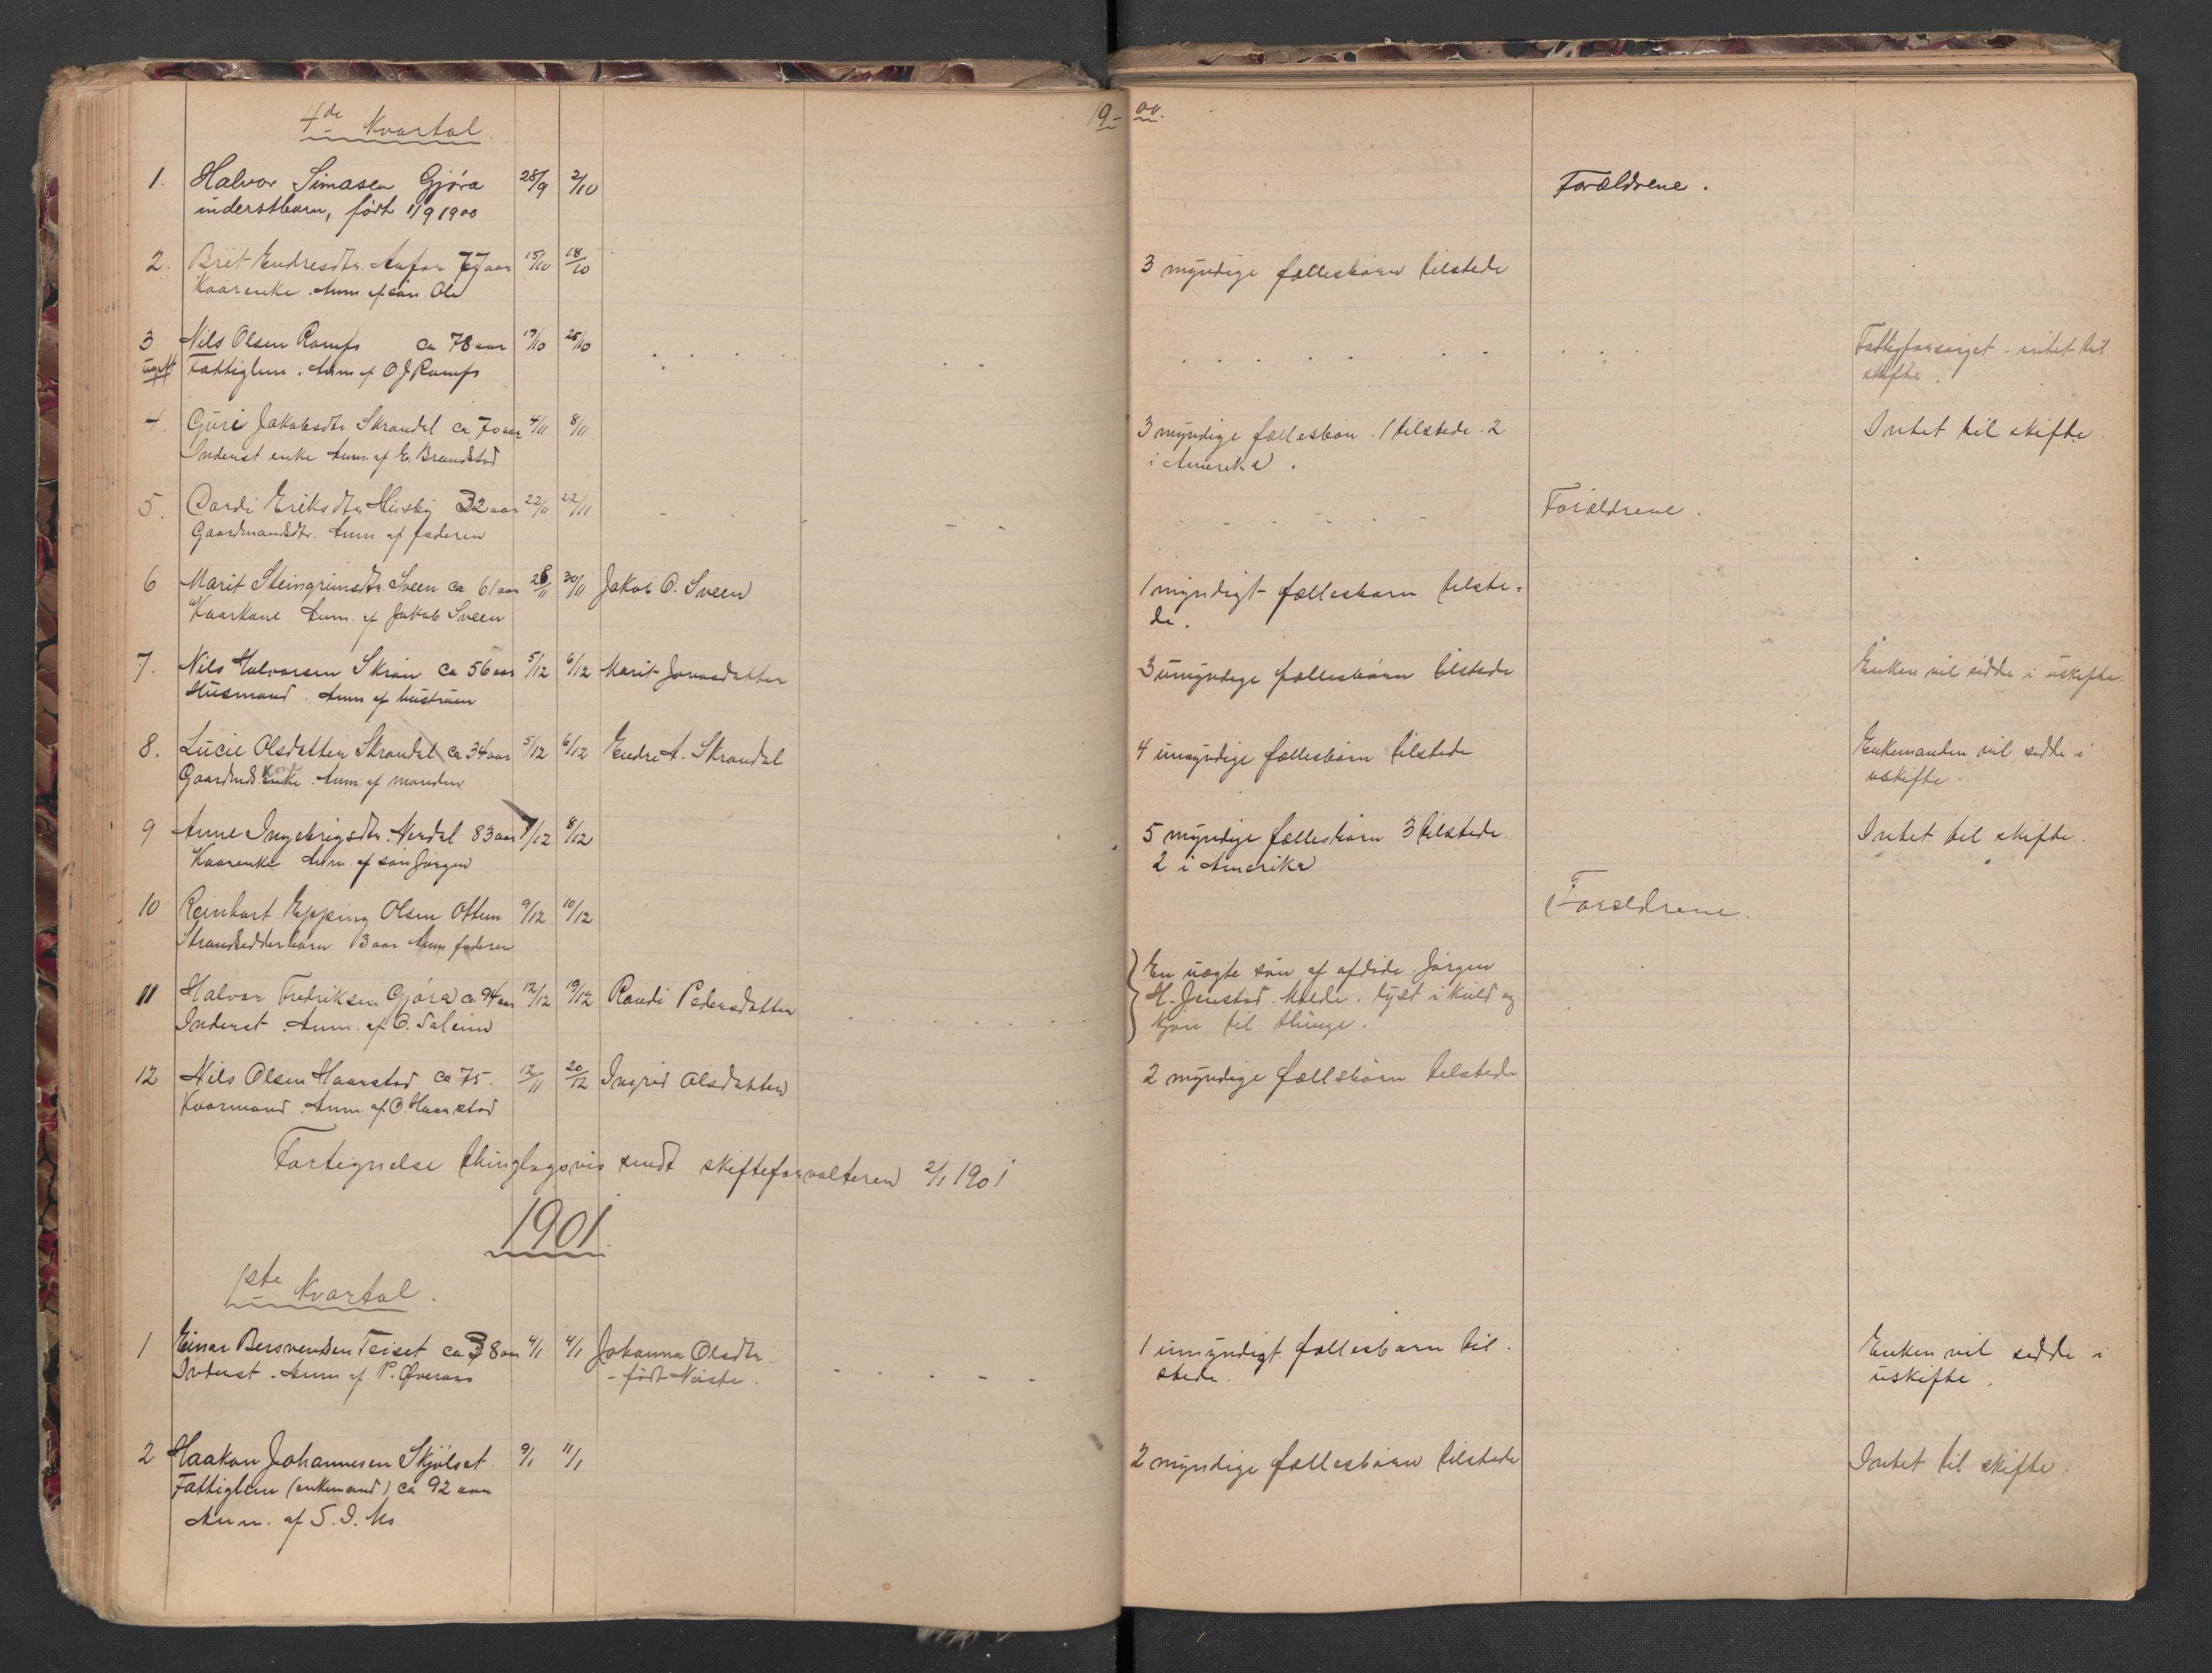 4de Kvartal.
19-00.
1. Halvor Simasen Gjøra 28/9 2/10 Forældrene.
inderstbarn, født 1/9 1900
2. Brit Endresdtr. 77 aar 15/10 18/10 3 myndige fællesbørn tilstede
Kaarenke. Anm. af søn Ole
3 Nils Olsen Romfo ca 78 aar 19/10 25/10 Fattigforsørget - intet til
ugift Fattiglem. Anm. af O J Romfo skifte.
4. Guri Jakobsdtr. Skrondal ca 70 aar 4/11 8/11 3 myndige fællesbørn. 1 tilstede. 2 Intet til skifte
Inderst enke Anm. af E. Brandstad i Amerika.
5. Dordi Eriksdtr. Husby 32 aar 22/11 22/11 Forældrene.
Gaardmandsdtr. Anm. af faderen
6 Marit Steingrimsdtr. Sveen ca 61 aar 28/11 30/11 Jakob O. Sveen 1 myndigt fællesbarn tilste-
Kaarkone Anm. af Jakob Sveen de.
7. Nils Halvorsen Skran ca 56 aar 5/12 6/12 Marit Jonasdatter 3 umyndige fællesbørn tilstede Enken vil sidde i uskifte.
Husmand. Anm. af hustruen
8. Lucie Olsdatter Skrondal ca 34 aar 5/12 6/12 Endre A. Skrondal 4 umyndige fællesbørn tilstede Enkemanden vil sidde i
Gaardmds Enke kone. Anm. af manden uskifte.
9 Anne Ingebrigsdtr. Nerdal 83 aar 7/12 8/12 5 myndige fællesbørn 3 tilstede. Intet til skifte.
Kaarenke Anm. af søn Jørgen 2 i Amerika
10 Reinhart Epping Olsen Ottem 9/12 10/12 Forældrene.
Strandsidderbarn 3 aar Anm. faderen
11 Halvor Fredriksen Gjøra ca 94 aar 12/12 19/12 Randi Pedersdatter En uægte søn af afdøde Jørgen
Inderst. Anm. af O. H. Jenstad. Molde. lyst i kuld og
kjøn til thinge.
12 Nils Olsen Haarstad ca 75. 12/11 20/12 Ingrid Olsdatter 2 myndige fællsbørn tilstede
Kaarmand. Anm. af O. Haarstad
Fortegnelse thinglagsvis sendt skifteforvalteren 2/1 1901
1901.
1ste Kvartal.
1 Einar Bersvendsen Teiset ca 38 aar 4/1 4/1 Johanna Olsdtr. 1 umyndigt fællesbarn til- Enken vil sidde i
Inderst. Anm. af P. Øveraas - født Niste. stede. uskifte.
2 Haakon Johannesen Skjølset 9/1 11/1 2 myndige fællesbørn tilstede Intet til skifte.
Fattiglem (enkemand) ca 92 aar
Anm. af S. I. Mo